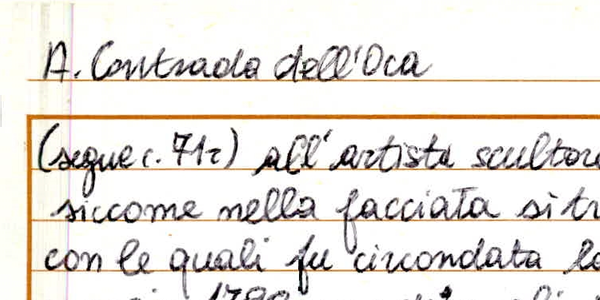 A. Contrada dell'Oca
(segue c. 71r) all'artista scultore
siccome nella facciata si tr
con le quali fu circondata la
1780